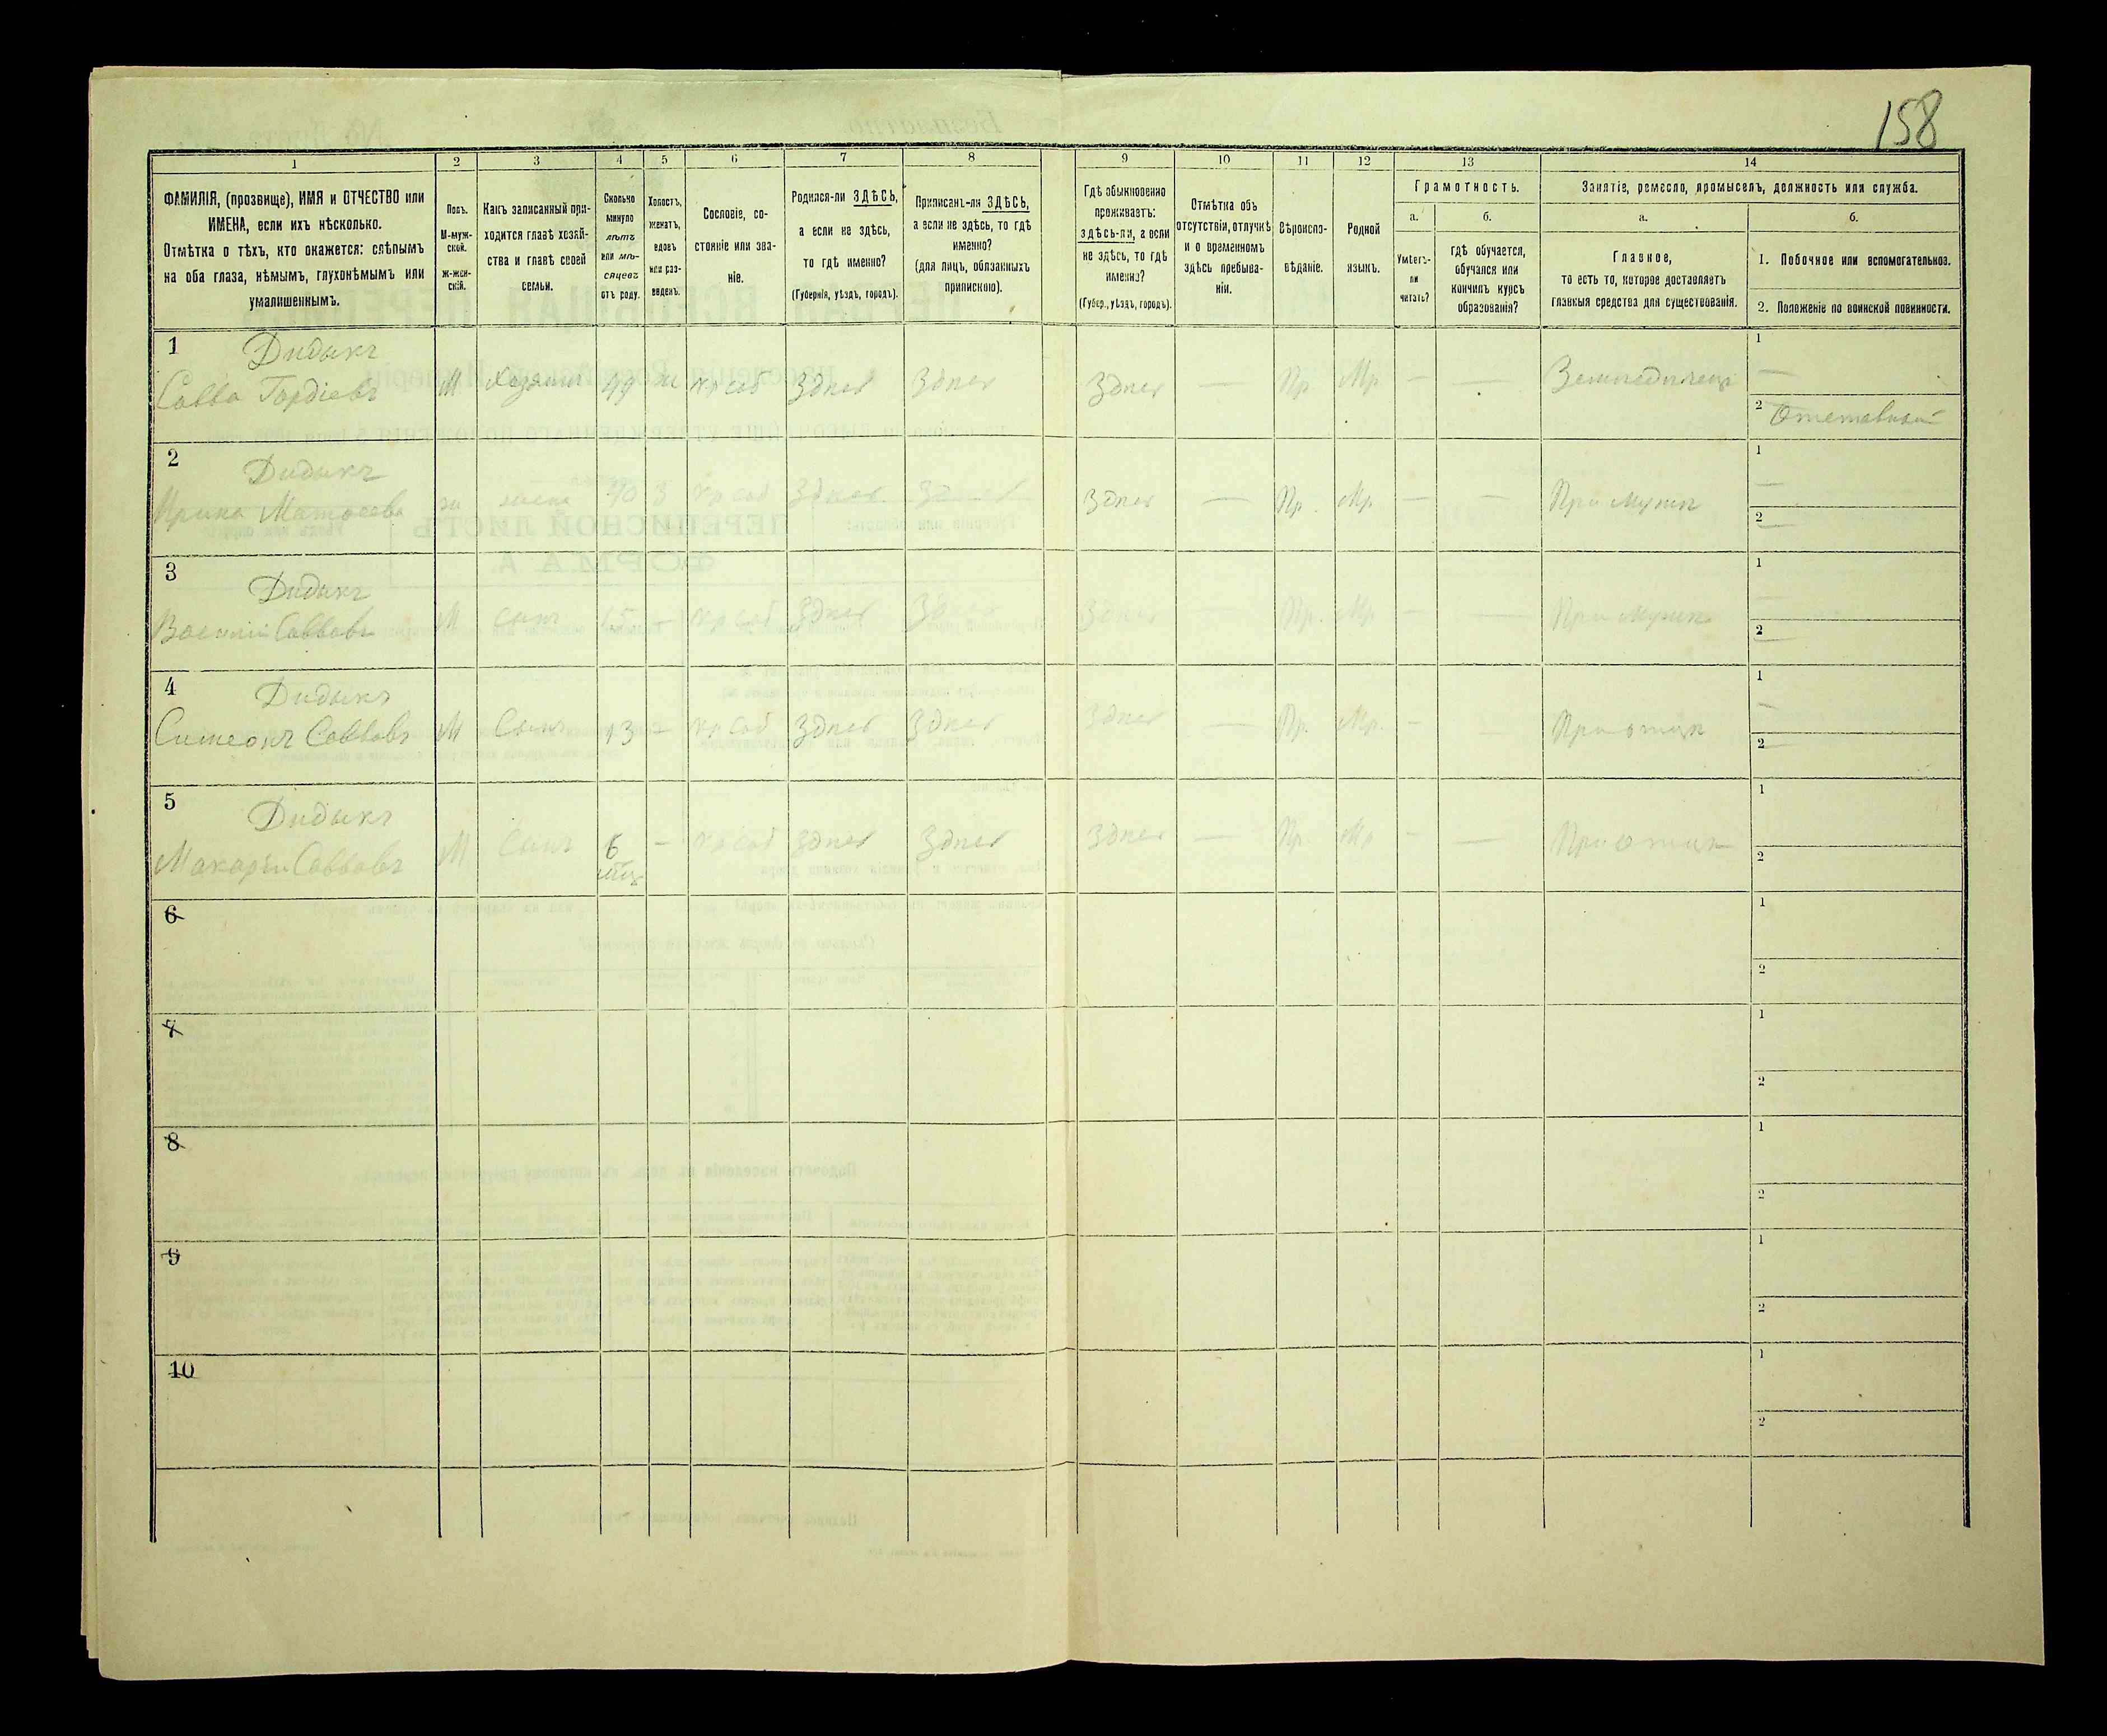 158
1 2 3 4 5 6 7 8 9 10 11 12 13 14
ФАМИЛІЯ, (прозвище), ИМЯ и ОТЧЕСТВО или
ИМЕНА, если ихъ нѣсколько.
Отмѣтка о тѣхъ, кто окажется: слѣпымъ
на оба глаза, нѣмымъ, глухонѣмымъ или
умалишеннымъ.
Полъ.
М-муж-
ской.
Ж-жен-
скій.
Какъ записанный при-
ходится главѣ хозяй-
ства и главѣ своей
семьи.
Сколько
минуло
лѣтъ
или мѣ-
сяцевъ
отъ роду.
Холостъ,
женатъ,
вдовъ
или раз-
веденъ.
Сословіе, со-
стояніе или зва-
ніе.
Родился-ли ЗДѢСЬ,
а если не здѣсь,
то гдѣ именно?
(Губернія, уѣздъ, городъ).
Приписанъ-ли ЗДѢСЬ,
а если не здѣсь, то гдѣ
именно?
(для лицъ, обязанныхъ
припискою).
Гдѣ обыкновенно
проживаетъ:
здѣсь-ли, а если
не здѣсь, то гдѣ
именно?
(Губер., уѣздъ, городъ).
Отмѣтка объ
отсутствіи, отлучкѣ
и о временномъ
здѣсь пребыва-
ніи.
Вѣроиспо-
вѣданіе.
Родной
языкъ.
Грамотность.
а.
Умѣетъ-
ли
читать?
б.
гдѣ обучается,
обучался или
кончилъ курсъ
образованія?
Занятіе, ремесло, промыселъ, должность или служба.
а.
Главное,
то есть то, которое доставляетъ
главныя средства для существованія.
б.
1. Побочное или вспомогательное.
2. Положеніе по воинской повинности.
1 Дидыкъ
Савва Гордіевъ М Хозяинъ 49 ж кр соб Здѣсь Здѣсь Здѣсь — Пр. Мр. — — Земледѣлецъ
1 —
2 Отставной
2 Дидыкъ
Ирина Матѳеева ж жена 40 З кр соб Здѣсь Здѣсь Здѣсь — Пр. Мр. — — При мужѣ
1 —
2 —
3 Дидыкъ
Василій Саввовъ М сынъ 15 — кр соб Здѣсь Здѣсь Здѣсь — Пр. Мр. — —
1 —
2 —
4 Дидыкъ
Симеонъ Саввовъ М Сынъ 13 — кр соб Здѣсь Здѣсь Здѣсь — Пр. Мр. — При отцѣ
1 —
2 —
5 Дидыкъ
Макарій Саввовъ М Сынъ 6 — кр соб Здѣсь Здѣсь Здѣсь — Пр. Мр — — При отцѣ
мѣс.
1
2
6
1
2
7
1
2
8
1
2
9
1
2
10
1
2